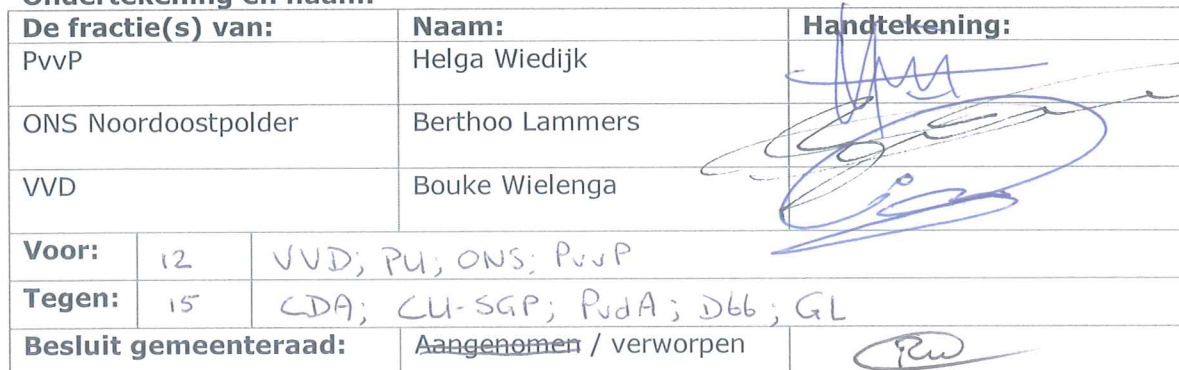 Ondertekening en naam:
De fractie(s) van: Naam: Handtekening:
PvvP Helga Wiedijk
ONS Noordoostpolder Berthoo Lammers
VVD Bouke Wielenga
Voor: 12 VVD; PU; ONS; PvvP
Tegen: 15 CDA; CU-SGP; PvdA; D66; GL
Besluit gemeenteraad: Aangenomen / verworpen